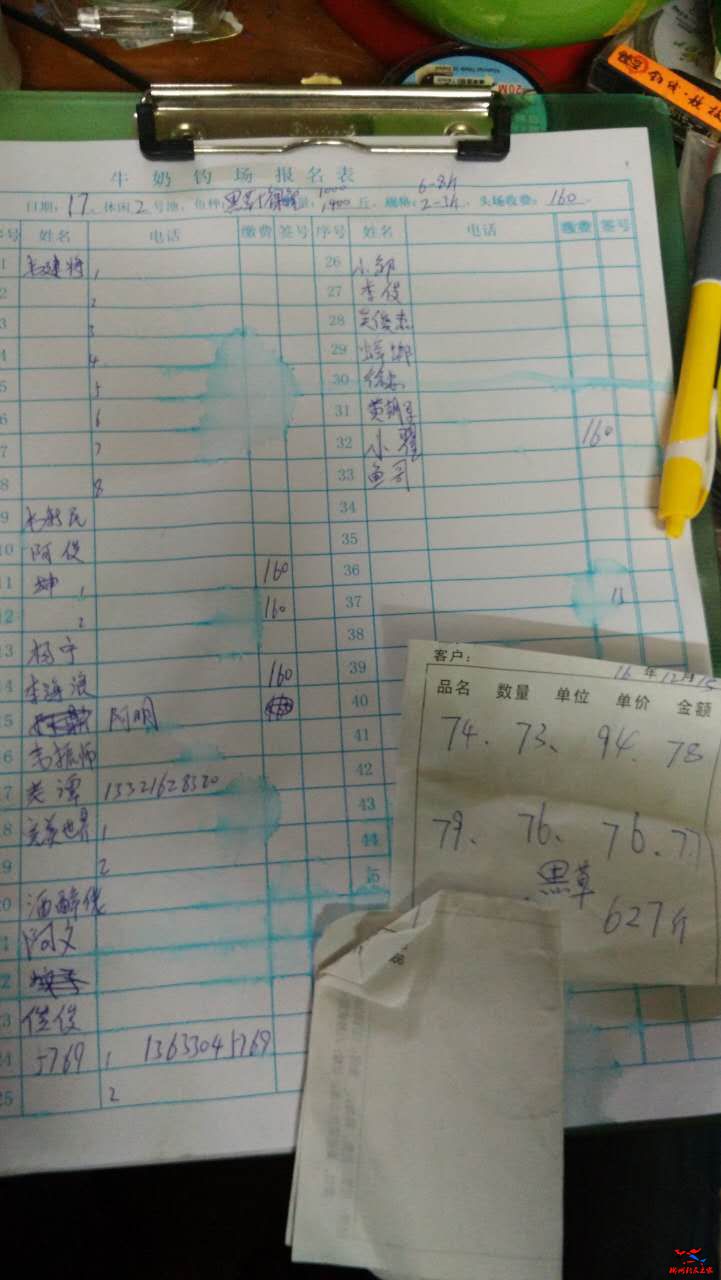 20M
牛奶钓场报名表
日期: 17 休闲 2 号池, 鱼种: 黑草 1000 1400 斤, 规格: 6-8斤 2-3斤, 头场收费: 160
序号 姓名 电话 缴费 签号 序号 姓名 电话 缴费 签号
1 1 26 小邹
2 2 27 李俊
3 3 28 吴俊杰
4 4 29 蟑螂
5 5 30
6 6 31
7 7 32 小翟 160
8 8 33 鱼司
9 34
10 阿俊 35
11 坤 1 160 36
12 2 160 37
13 杨宁 38
14 李海浪 160 39
15 阿明 40
16 41
17 老谭 13321628320 42
18 完美世界 1 43
19 2 44
20 酒醉佬 45
21 阿文
22
23 俊俊
24 5769 1 13633045769
25 2
客户:
16 年 12 月 15
品名 数量 单位 单价 金额
74、 73、 94、 78
79、 76、 76、 77
黑草
627斤